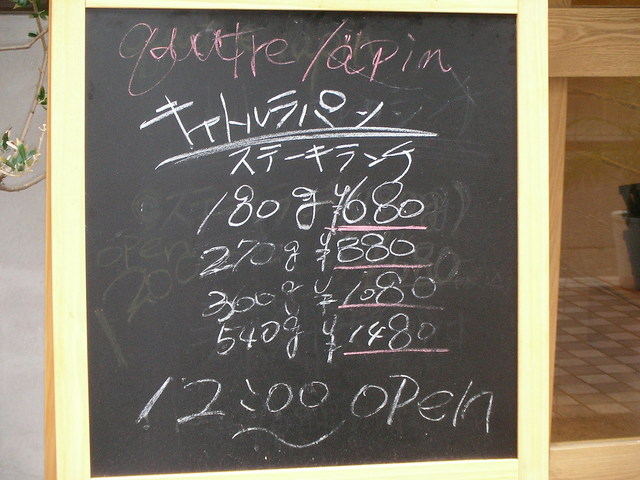 quatre lapin
キャトルラパン
ステーキランチ
180g ¥680
270g ¥880
360g ¥1080
540g ¥1480
12:00 open